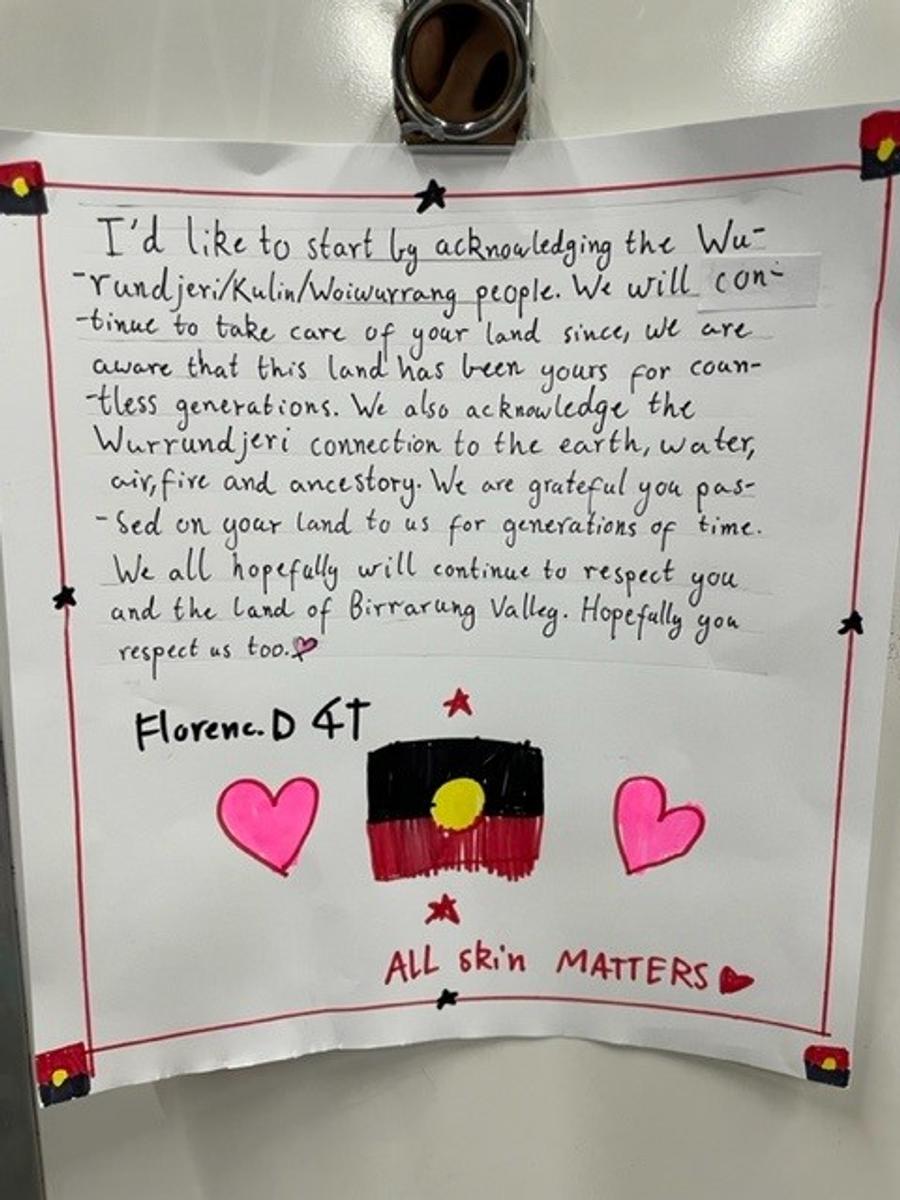 I'd like to start by acknowledging the Wu-
-rundjeri/Kulin/Woiwurrang people. We will con-
-tinue to take care of your land since, we are
aware that this land has been yours for coun-
-tless generations. We also acknowledge the
Wurrundjeri connection to the earth, water,
air, fire and ancestory. We are grateful you pas-
-sed on your land to us for generations of time.
We all hopefully will continue to respect you
and the land of Birrarung Valley. Hopefully you
respect us too.
Florenc.D 4T
ALL skin MATTERS